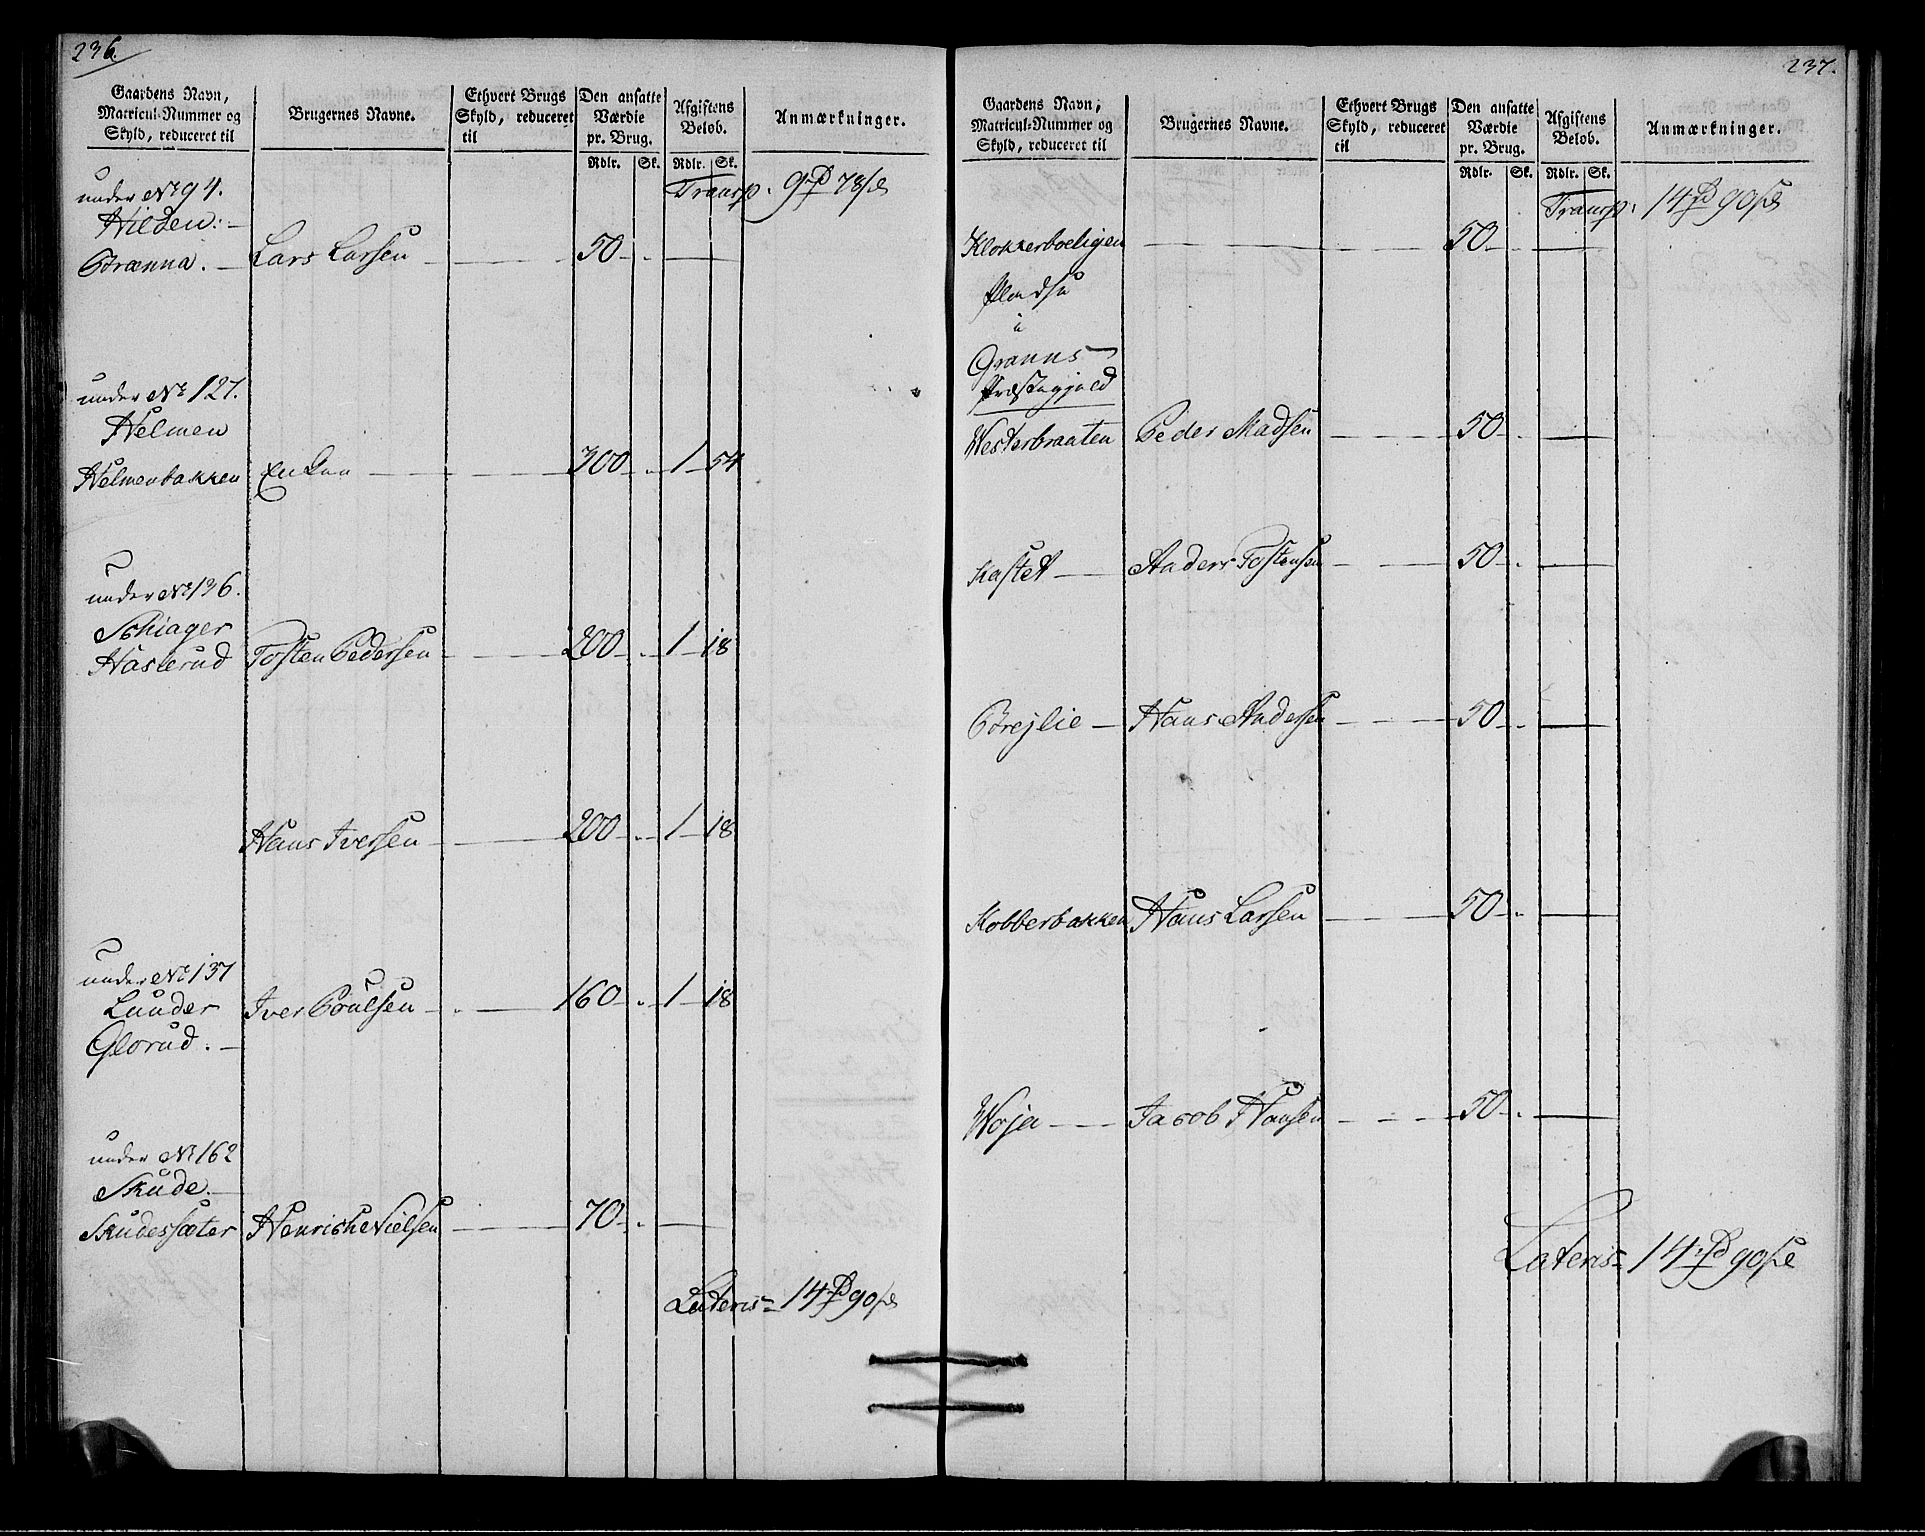 236.
Gaardens Navn, Matricul-Nummer og Skyld, reduceret til
Brugernes Navne.
Ethvert Brugs Skyld, reduceret til
Den ansatte Værdie pr. Brug.
Afgiftens Beløb.
Anmærkninger.
Rdlr. Sk. Rdlr. Sk.
Transp. 9 78
under No 94.
Hilden:
Brænna. Lars Larsen 50
under No 127.
Helmen
Helmenbakken Enken 300 1 54
under No 136.
Schiager
Haslerud Tosten Pedersen 200 1 18
Hans Iversen 200 1 18
under No 137
Lunder
Glorud. Iver Poulsen 160 1 18
under No 162
Skude.
Skudessæter Henrich Nielsen 70
Lateris 14 90
237.
Gaardens Navn, Matricul-Nummer og Skyld, reduceret til
Brugernes Navne.
Ethvert Brugs Skyld, reduceret til
Den ansatte Værdie pr. Brug.
Afgiftens Beløb.
Anmærkninger.
Rdlr. Sk. Rdlr. Sk.
Transp: 14 90
Klokkerboeligen 50
Pladse
i
Granns
Præstegjeld
Westerbraaten Peder Madsen 50
Kastet Anders Tostensen 50
Brejlie Hans Andersen 50
Kobberbakken Hans Larsen 50
Woja Jacob Hansen 50
Lateris 14 90